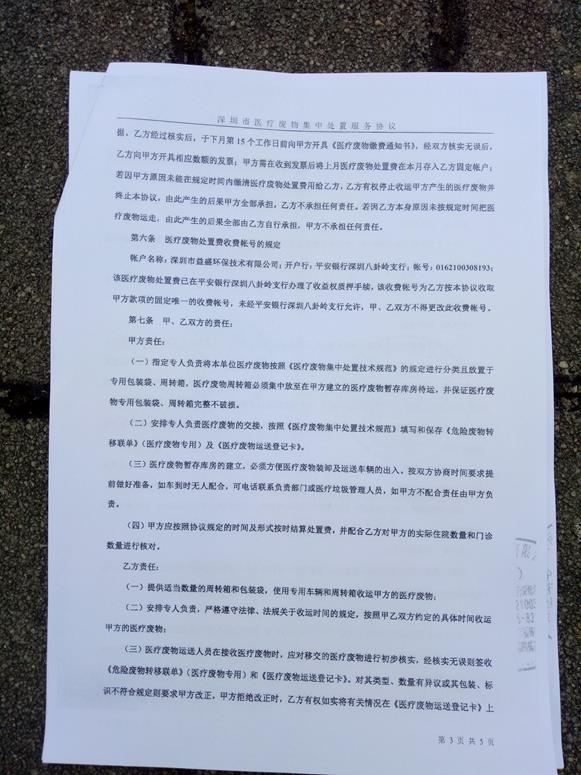 深圳市医疗废物集中处置服务协议
据。乙方经过核实后，于下月第15个工作日前向甲方开具《医疗废物缴费通知书》，经双方核实无误后，
乙方向甲方开具相应数额的发票；甲方需在收到发票后将上月医疗废物处置费在本月存入乙方固定帐户；
若因甲方原因未能在规定时间内缴清医疗废物处置费用给乙方，乙方有权停止收运甲方产生的医疗废物并
终止本协议，由此产生的后果甲方全部承担，乙方不承担任何责任。若因乙方本身原因未按规定时间把医
疗废物运走，由此产生的后果全部由乙方自行承担，甲方不承担任何责任。
第六条 医疗废物处置费收费帐号的规定
帐户名称：深圳市益盛环保技术有限公司；开户行：平安银行深圳八卦岭支行；帐号：0162100308193；
该医疗废物处置费已在平安银行深圳八卦岭支行办理了收益权质押手续，该收费帐号为乙方按本协议收取
甲方款项的固定唯一的收费帐号，未经平安银行深圳八卦岭支行允许，甲、乙双方不得更改此收费帐号。
第七条 甲、乙双方的责任：
甲方责任：
（一）指定专人负责将本单位医疗废物按照《医疗废物集中处置技术规范》的规定进行分类且放置于
专用包装袋、周转箱。医疗废物周转箱必须集中放至在甲方建立的医疗废物暂存库房待运，并保证医疗废
物专用包装袋、周转箱完整不破损。
（二）安排专人负责医疗废物的交接，按照《医疗废物集中处置技术规范》填写和保存《危险废物转
移联单》（医疗废物专用）及《医疗废物运送登记卡》。
（三）医疗废物暂存库房的建立，必须方便医疗废物装卸及运送车辆的出入。按双方协商时间要求提
前做好准备，如车到时无人配合，可电话联系负责部门或医疗垃圾管理人员，如甲方不配合责任由甲方负
责。
（四）甲方应按照协议规定的时间及形式按时结算处置费，并配合乙方对甲方的实际住院数量和门诊
数量进行核对。
乙方责任：
（一）提供适当数量的周转箱和包装袋，使用专用车辆和周转箱收运甲方的医疗废物；
（二）安排专人负责，严格遵守法律、法规关于收运时间的规定，按照甲乙双方约定的具体时间收运
甲方的医疗废物；
（三）医疗废物运送人员在接收医疗废物时，应对移交的医疗废物进行初步核实，经核实无误则签收
《危险废物转移联单》（医疗废物专用）和《医疗废物运送登记卡》。对其类型、数量有异议或其包装、标
识不符合规定则要求甲方改正，甲方拒绝改正时，乙方有权如实将有关情况在《医疗废物运送登记卡》上
第 3 页 共 5 页